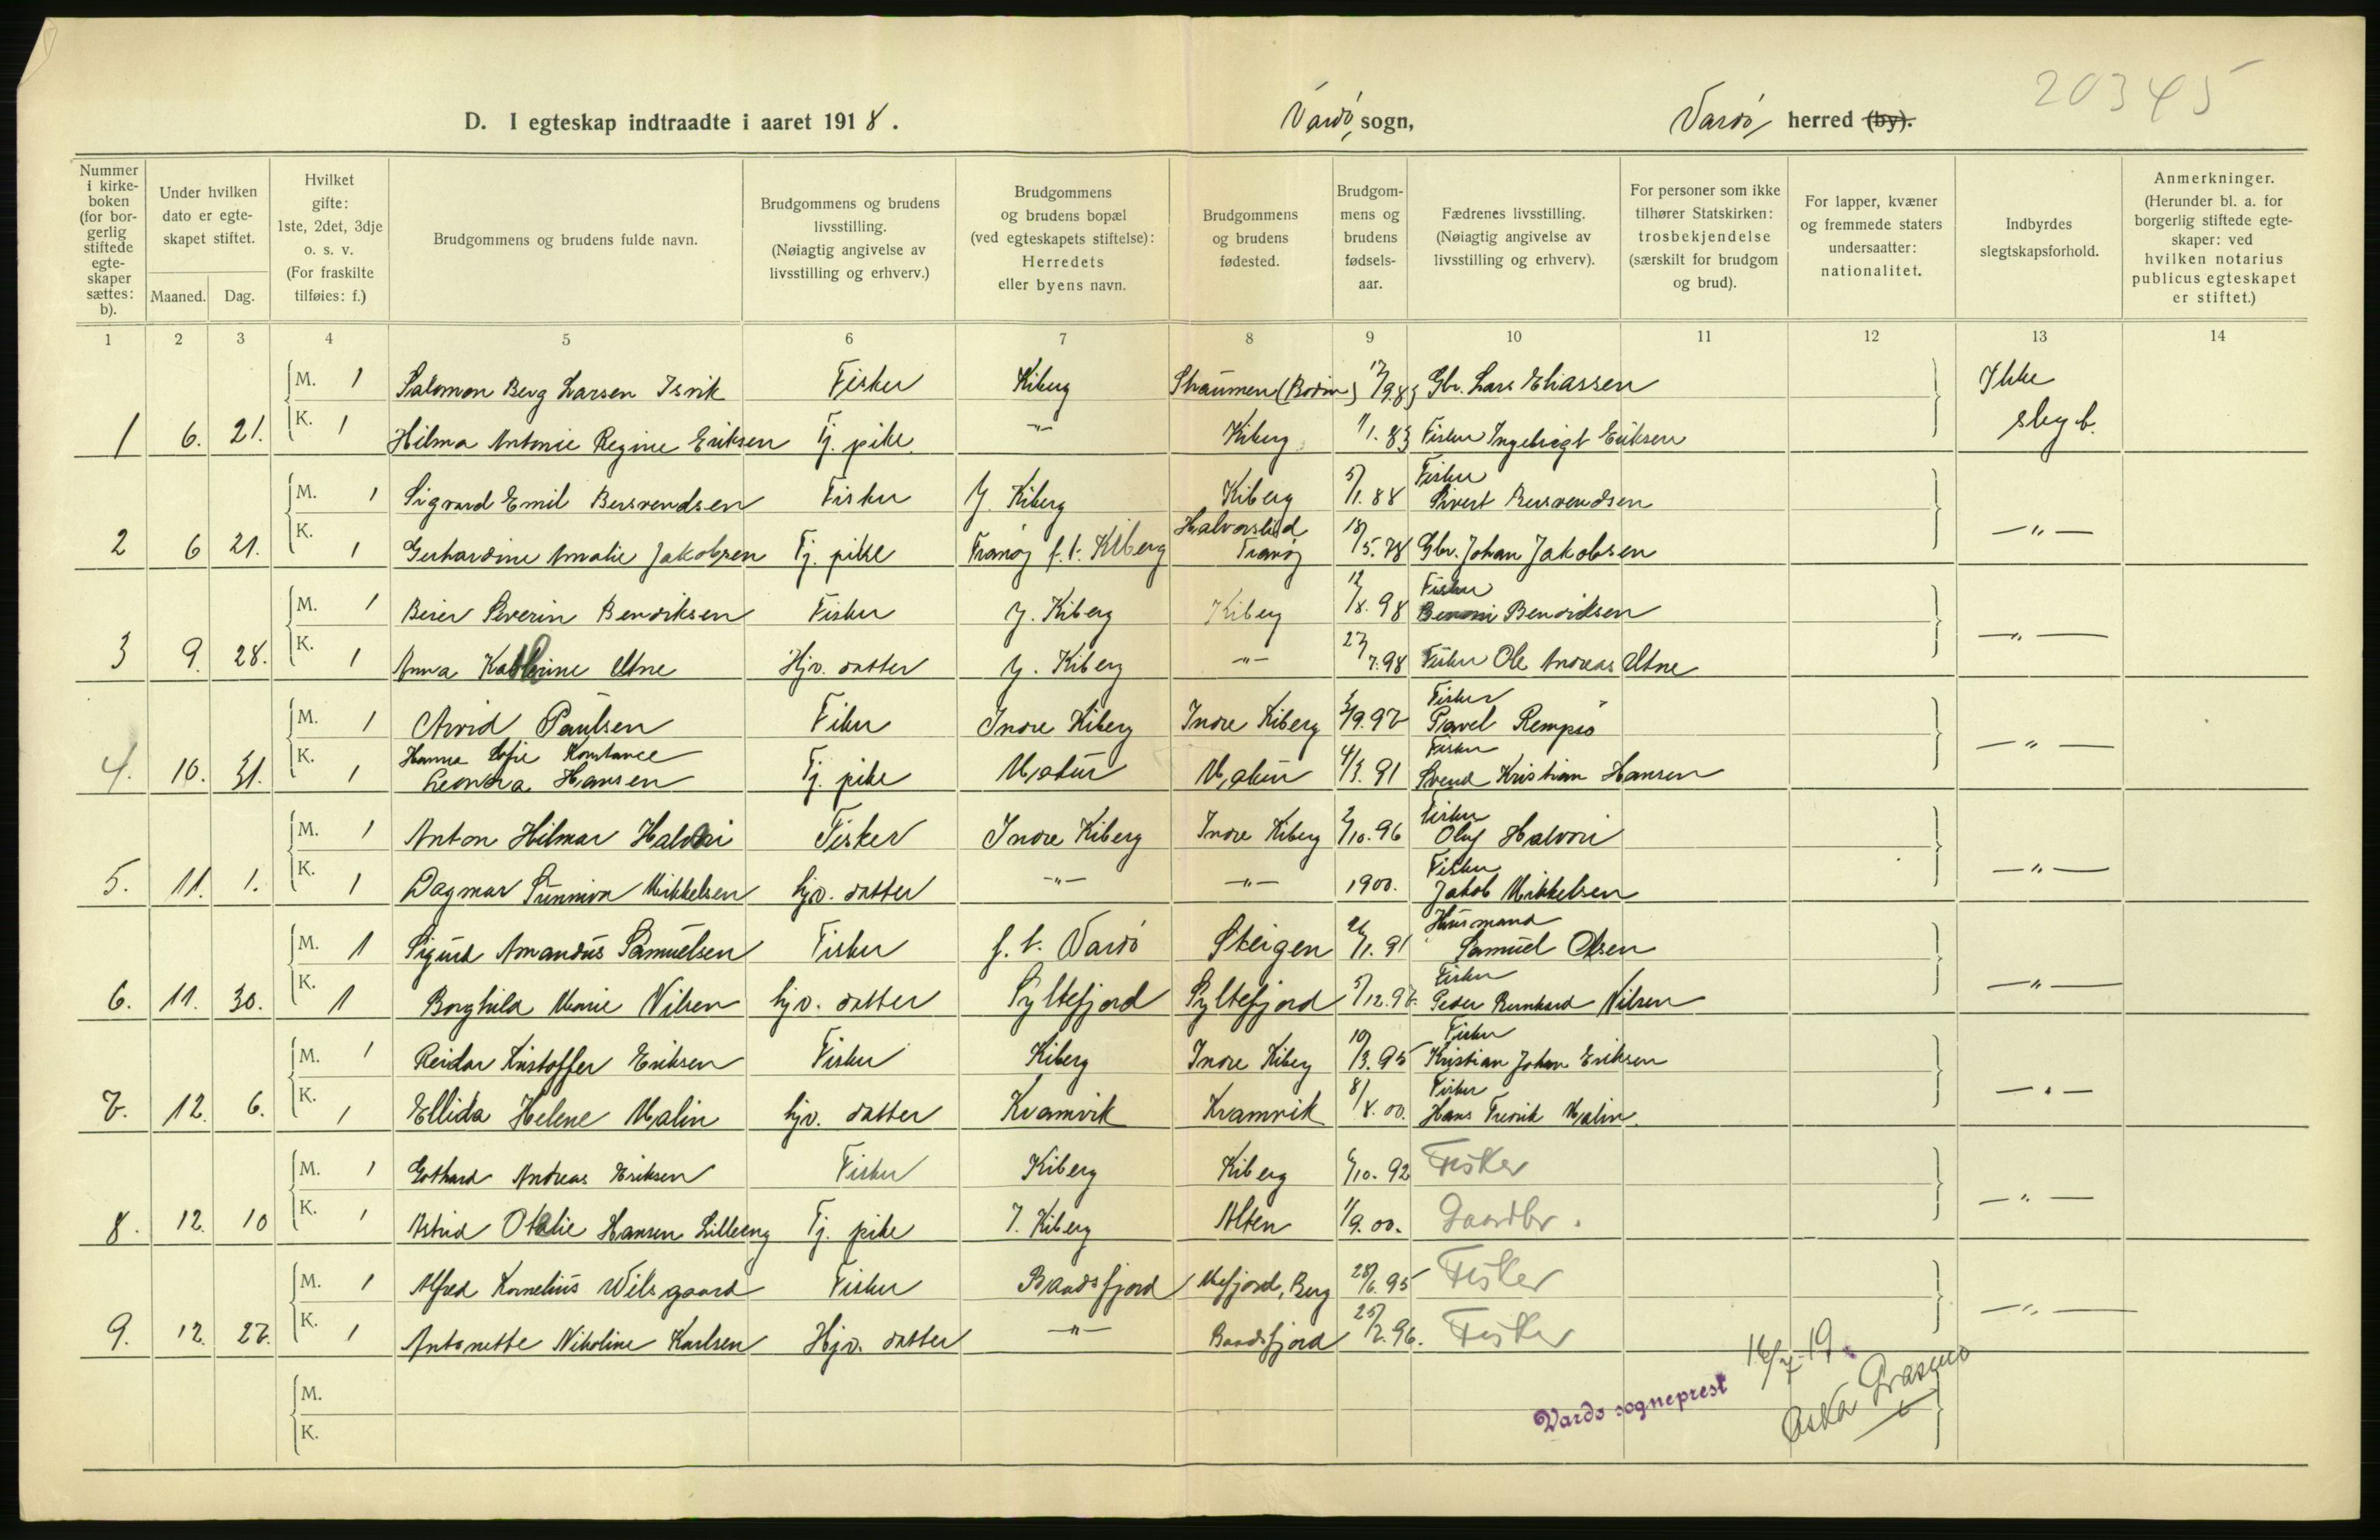 20345
D. I egteskap indtraadte i aaret 1918. Vardö sogn, Vardö herred (by).
Nummer i kirke-boken (for bor-gerlig stiftede egte-skaper sættes: b).
Under hvilken dato er egte-skapet stiftet.
Maaned. Dag.
Hvilket gifte: 1ste, 2det, 3dje o. s. v. (For fraskilte tilføies: f.)
Brudgommens og brudens fulde navn.
Brudgommens og brudens livsstilling. (Nøiagtig angivelse av livsstilling og erhverv.)
Brudgommens og brudens bopæl (ved egteskapets stiftelse): Herredets eller byens navn.
Brudgommens og brudens fødested.
Brudgom-mens og brudens fødsels-aar.
Fædrenes livsstilling. (Nøiagtig angivelse av livsstilling og erhverv).
For personer som ikke tilhører Statskirken: trosbekjendelse (særskilt for brudgom og brud).
For lapper, kvæner og fremmede staters undersaatter: nationalitet.
Indbyrdes slegtskapsforhold.
Anmerkninger. (Herunder bl. a. for borgerlig stiftede egte-skaper: ved hvilken notarius publicus egteskapet er stiftet.)
1 2 3 4 5 6 7 8 9 10 11 12 13 14
M. 1 Salomon Berg Larsen Isvik Fisker Kiberg Straumen (Bodin) Gbr. Lars Eliassen Ikke
1 6. 21. K. 1 Hilma Antonie Regine Eriksen Tj. pike -"- Kiberg 1/1. 83 Fisker Ingebrigt Eriksen slegtn.
M. 1 Sigvard Emil Bersvendsen Fisker Y. Kiberg Kiberg 5/1. 88 Fisker Sivert Bersvendsen
2 6 21. K. 1 Gerhardine Amalie Jakobsen Tj. pike Tranøy f. t. Kiberg Tranøy 18/5. 78 Gbr. Johan Jakobsen -"-
M. 1 Beier Severin Bendiksen Fisker Y. Kiberg Kiberg 12/8. 98 Fisker Benoni Bendiksen
3 9. 28. K. 1 Anna Kathrine Utne Hjv. datter Y. Kiberg -"- 27/7. 98 Fisker Ole Andreas Utne -"-
M. 1 Arvid Paulsen Fisker Indre Kiberg Indre Kiberg Fisker Pavel
4. 10. 31. K. 1 Hanna Sofie Konstance Leonora Hansen Tj. pike 4/3. 91 Fisker Svend Kristian Hansen -"-
M. 1 Anton Hilmar Halvari Fisker Indre Kiberg Indre Kiberg 2/10. 96 Fisker Oluf Halvari
5. 11. 1. K. 1 Dagmar Sunniva Mikkelsen hjv. datter -"- -"- 1900. Fisker Jakob Mikkelsen -"-
M. 1 Sigurd Amandus Samuelsen Fisker f. t. Vardö Steigen 26/1. 91 Husmand Samuel Olsen
6. 11. 30. K. 1 Borghild Marie Nilsen hjv. datter Syltefjord Syltefjord 5/12. 97. Fisker Peder Bernhard Nilsen -"-
M. 1 Reidar Kristoffer Eriksen Fisker Kiberg Indre Kiberg 10/3. 95 Fisker Kristian Johan Eriksen
7. 12. 6. K. 1 Ellida Helene Malin hjv. datter Kramvik Kramvik 8/8. 00. Fisker Hans Fredrik Malin. -"-
M. 1 Gothard Andreas Eriksen Fisker Kiberg Kiberg 6/10. 92 Fisker
8. 12. 10 K. 1 Astrid Otelie Hansen Lilleeng Tj. pike I. Kiberg Alten 1/9. 00. Gaardbr. -"-
M. 1 Alfred Kornelius Wilsgaard Fisker Baadsfjord Mefjord, Berg 28/6. 95 Fisker
9. 12. 27. K. 1 Antonette Nikoline Karlsen Hjv. datter -"- Baadsfjord 25/2. 96. Fisker -"-
M.
K.
Vardö sogneprest